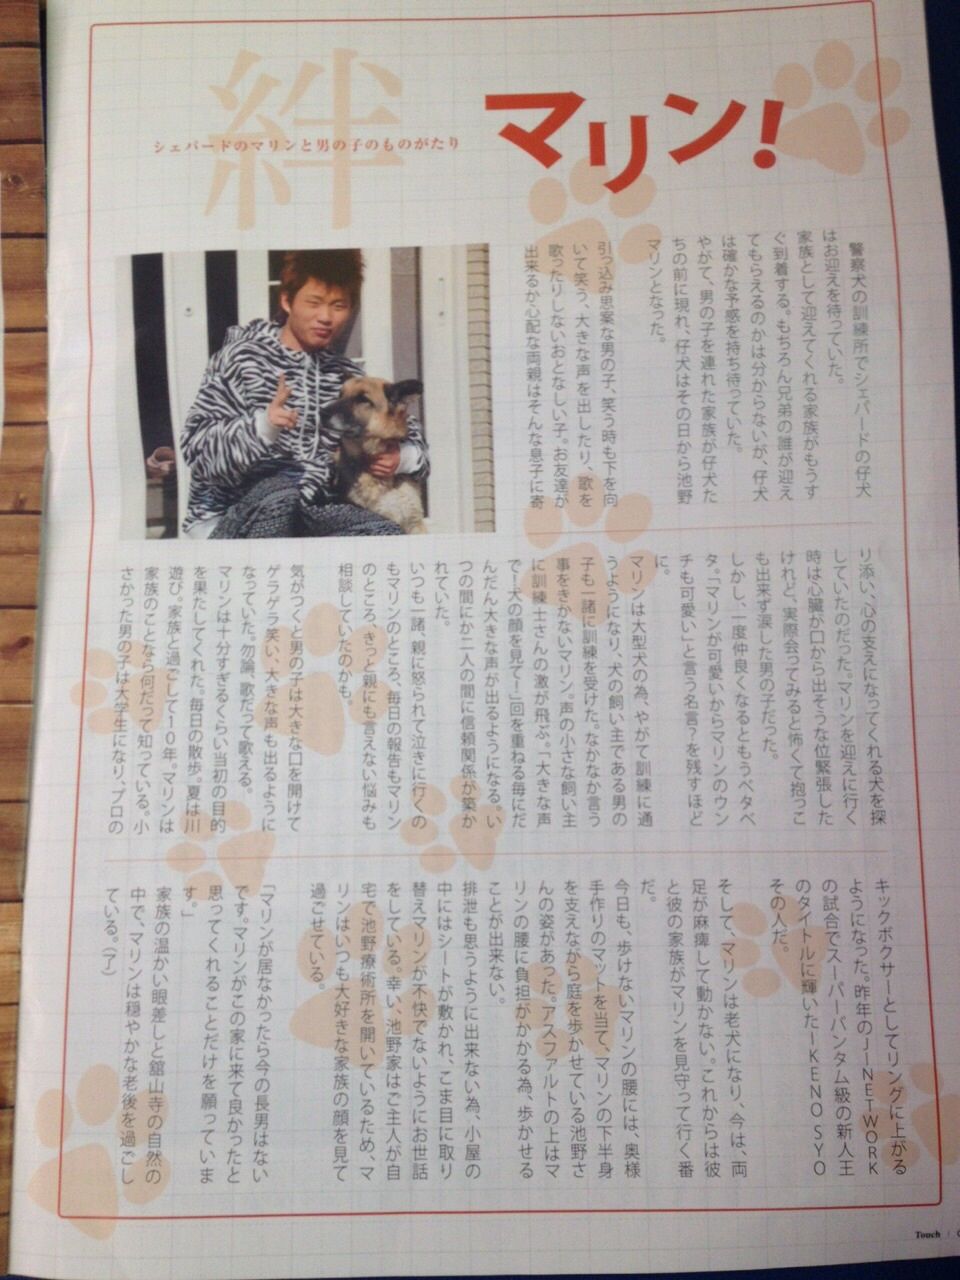 絆
シェパードのマリンと男の子のものがたり
マリン!
警察犬の訓練所でシェパードの仔犬
はお迎えを待っていた。
家族として迎えてくれる家族がもうす
ぐ到着する。もちろん兄弟の誰が迎え
てもらえるのかは分からないが、仔犬
は確かな予感を持ち待っていた。
やがて、男の子を連れた家族が仔犬た
ちの前に現れ、仔犬はその日から池野
マリンとなった。
引っ込み思案な男の子、笑う時も下を向
いて笑う、大きな声を出したり、歌を
歌ったりしないおとなしい子。お友達が
出来るか心配な両親はそんな息子に寄
り添い、心の支えになってくれる犬を探
していたのだった。マリンを迎えに行く
時は心臓が口から出そうな位緊張した
けれど、実際会ってみると怖くて抱っこ
も出来ず涙した男の子だった。
しかし、一度仲良くなるともうベタベ
タ。「マリンが可愛いからマリンのウン
チも可愛い」と言う名言?を残すほど
に。
マリンは大型犬の為、やがて訓練に通
うようになり、犬の飼い主である男の
子も一諸に訓練を受けた。なかなか言う
事をきかないマリン。声の小さな飼い主
に訓練士さんの激が飛ぶ。「大きな声
で!犬の顔を見て!」回を重ねる毎にだ
んだん大きな声が出るようになる。い
つの間にか二人の間に信頼関係が築か
れていた。
いつも一諸、親に怒られて泣きに行くの
もマリンのところ、毎日の報告もマリン
のところ、きっと親にも言えない悩みも
相談していたのかも。
気がつくと男の子は大きな口を開けて
ゲラゲラ笑い、大きな声も出るように
なっていた。勿論、歌だって歌える。
マリンは十分すぎるくらい当初の目的
を果たしてくれた。毎日の散歩。夏は川
遊び。家族と過ごして10年。マリンは
家族のことなら何だって知っている。小
さかった男の子は大学生になり、プロの
キックボクサーとしてリングに上がる
ようになった。昨年のJ-NETWORK
の試合でスーパーバンタム級の新人王
のタイトルに輝いたIKENO SYO
その人だ。
そして、マリンは老犬になり、今は、両
足が麻痺して動かない。これからは彼
と彼の家族がマリンを見守って行く番
だ。
今日も、歩けないマリンの腰には、奥様
手作りのマットを当て、マリンの下半身
を支えながら庭を歩かせている池野さ
んの姿があった。アスファルトの上はマ
リンの腰に負担がかかる為、歩かせる
ことが出来ない。
排泄も思うように出来ない為、小屋の
中にはシートが敷かれ、こま目に取り
替えマリンが不快でないようにお世話
をしている。幸い、池野家はご主人が自
宅で池野療術所を開いているため、マ
リンはいつも大好きな家族の顔を見て
過ごせている。
「マリンが居なかったら今の長男はない
です。マリンがこの家に来て良かったと
思ってくれることだけを願っていま
す。」
家族の温かい眼差しと舘山寺の自然の
中で、マリンは穏やかな老後を過ごし
ている。(ア)
Touch